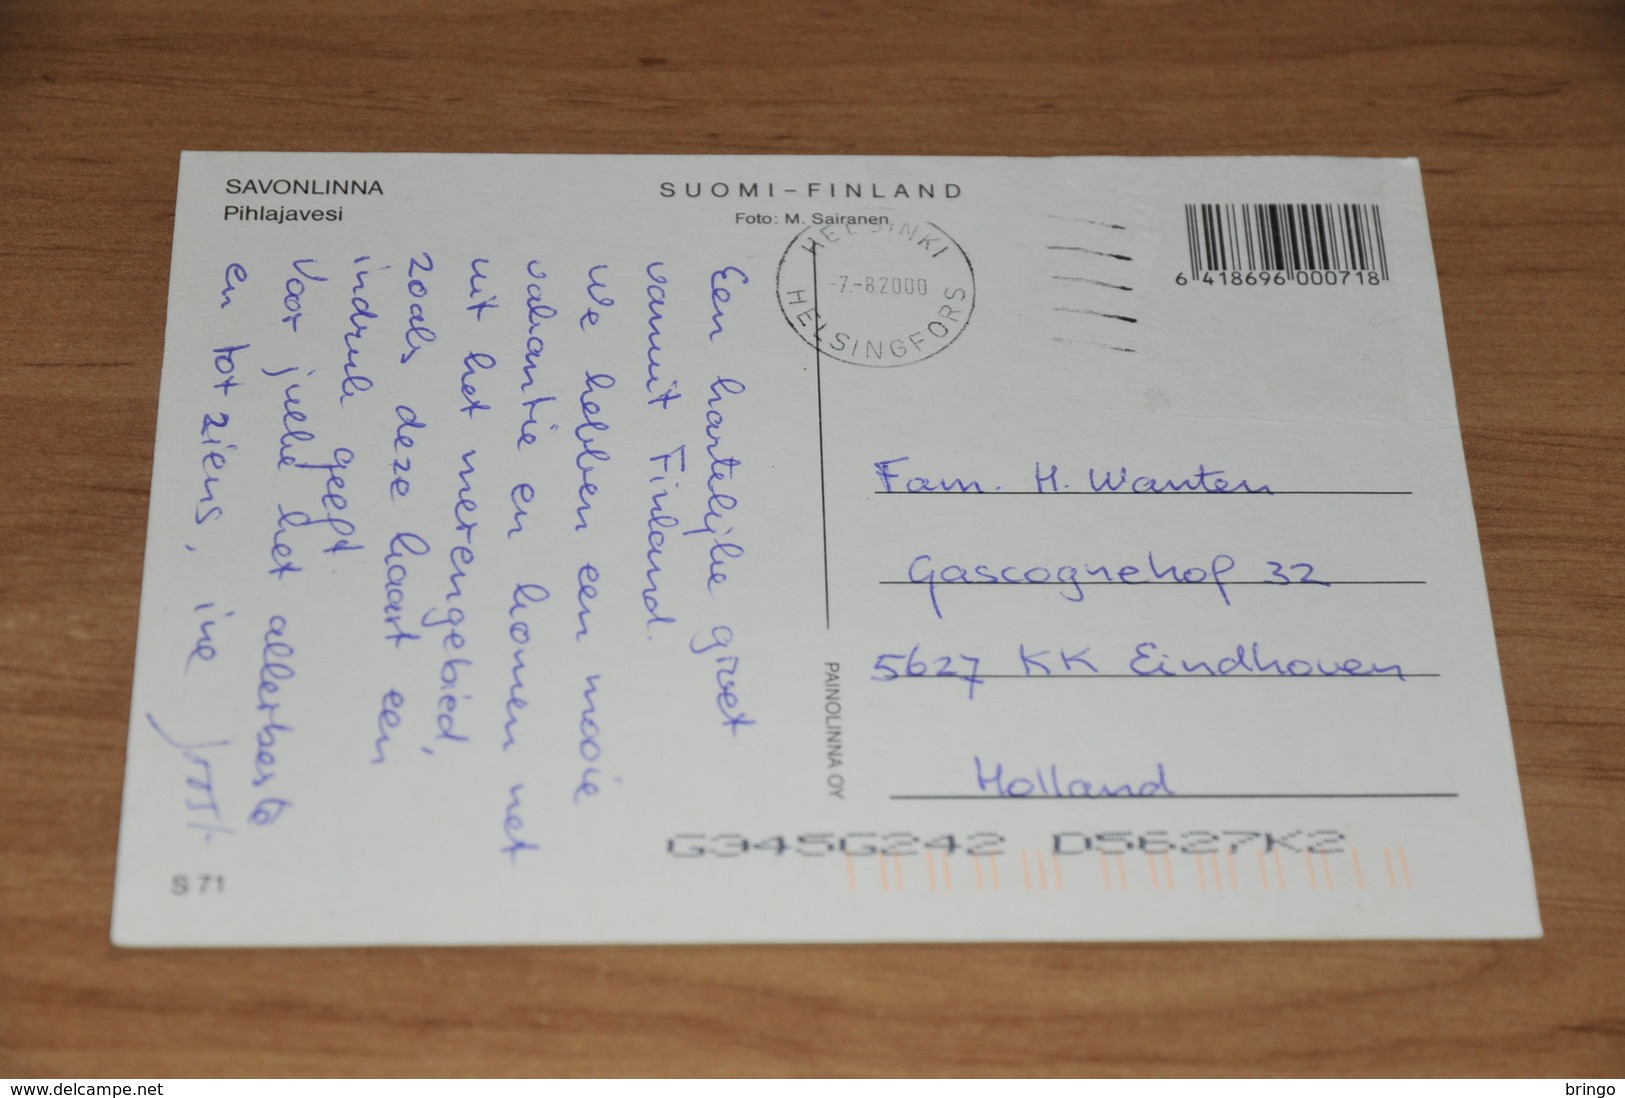 SAVONLINNA
Pihlajavesi
SUOMI-FINLAND
Foto: M. Sairanen
HELSINKI
-7.-8.2000
HELSINGFORS
6 418696 000718
Een hartelijke groet
vanuit Finland.
We hebben een mooie
vakantie en komen net
uit het merengebied,
zoals deze kaart een
indruk geeft.
Voor jullie het allerbeste
en tot ziens, ine
Joost
Fam. H. Wanten
Gascognehof 32
5627 KK Eindhoven
Holland
PAINOLINNA OY
G345G242 D5627K2
S 71
www.delcampe.net
bringo